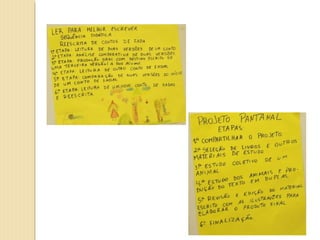 LER PARA MELHOR ESCREVER
SEQUÊNCIA DIDÁTICA
REESCRITA DE CONTOS DE FADA
1ª ETAPA LEITURA DE DUAS VERSÕES DE UM CONTO
2ª ETAPA ANÁLISE COMPARATIVA DE DUAS VERSÕES
3ª ETAPA PRODUÇÃO ORAL COM DESTINO ESCRITO DE
UMA TERCEIRA VERSÃO
4ª ETAPA LEITURA DE OUTRO CONTO DE FADAS
5ª ETAPA COMPARAÇÃO DE DUAS VERSÕES DO INÍCIO
DE UM CONTO DE FADAS
6ª ETAPA LEITURA DE UM NOVO CONTO DE FADAS
E REESCRITA
PROJETO PANTANAL
ETAPAS
1ª COMPARTILHAR O PROJETO
2ª SELEÇÃO DE LIVROS E OUTROS
MATERIAIS DE ESTUDO
3ª ESTUDO COLETIVO DE UM
ANIMAL
4ª ESTUDO DOS ANIMAIS E PRO-
DUÇÃO DO TEXTO EM DUPLAS
5ª REVISÃO E EDIÇÃO DO MATERIAL
ESCRITO COM AS ILUSTRAÇÕES PARA
ELABORAR O PRODUTO FINAL
6ª FINALIZAÇÃO